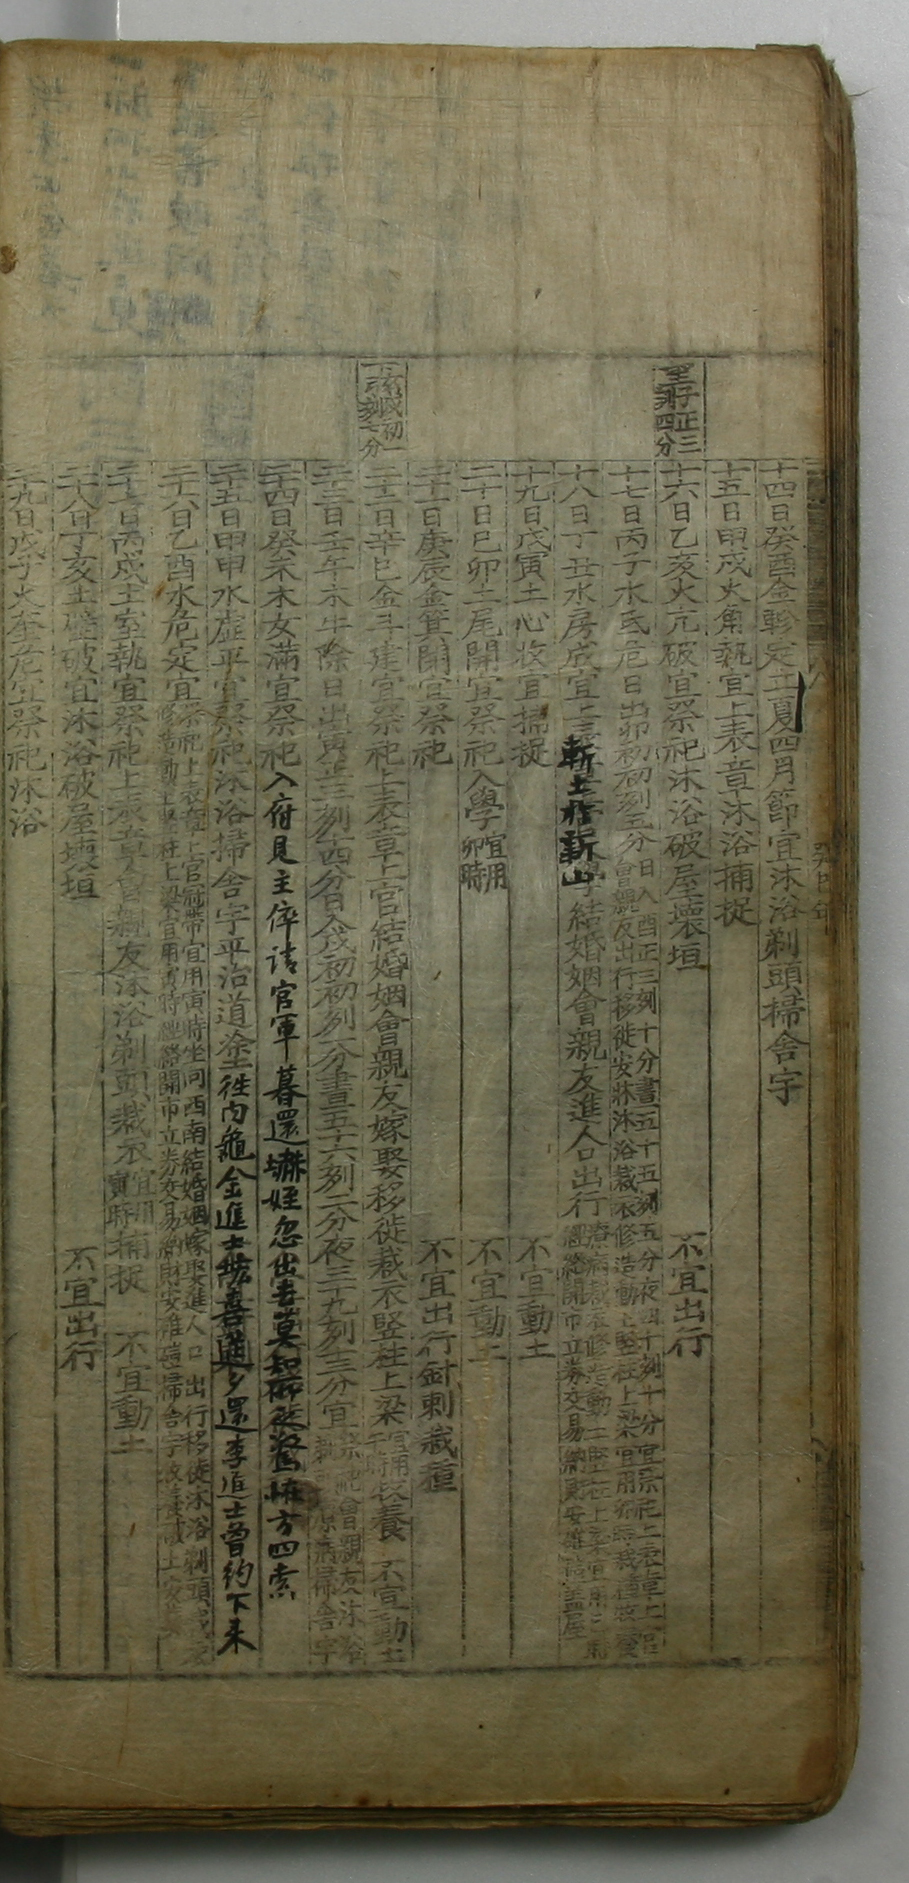 癸巳年
十四日癸酉金軫定立夏四月節宜沐浴剃頭掃舍宇
十五日甲戌火角執宜上表章沐浴捕捉
望子正三刻四分
十六日乙亥火亢破宜祭祀沐浴破屋壞垣 不宜出行
十七日丙子水氐危日出卯初初刻五分日入酉正三刻十分晝五十五刻五分夜四十刻十分宜祭祀上表章上官
會親友出行移徙安牀沐浴裁衣修造動土竪柱上梁宜用卯時栽種牧養
十八日丁丑水房成宜上 結婚姻會親友進人口出行療病裁衣修造動土竪柱上梁宜用
開市立券交易納財安碓磑盖屋
斬土 新山
十九日戊寅土心收宜捕捉 不宜動土
二十日己卯土尾開宜祭祀入學宜用卯時 不宜動土
二十一日庚辰金箕閉宜祭祀 不宜出行針刺栽種
下弦戌初一刻七分
二十二日辛巳金斗建宜祭祀上表章上官結婚姻會親友嫁娶移徙裁衣竪柱上梁宜用午時牧養 不宜動土
二十三日壬午木牛除日出寅正三刻十四分日入戌初初刻一分晝五十六刻二分夜三十九刻十三分宜祭祀會親友沐浴
剃頭療病掃舍宇
二十四日癸未木女滿宜祭祀
入府見主倅請官軍暮還 姪忽出去莫知所從驚怪方四索
二十五日甲申水虛平宜祭祀沐浴掃舍宇平治道塗
徃内龜金進士 喜 夕還李進士曾約下来
二十六日乙酉水危定宜祭祀上表章上官冠帶宜用寅時坐向西南結婚姻嫁娶進人口出行移徙沐浴剃頭裁衣
修造動土竪柱上梁宜用寅時 開市立券交易納財安碓磑掃舍宇牧養破土安葬
二十七日丙戌土室執宜祭祀上表章會親友沐浴剃頭裁衣宜用寅時捕捉 不宜動土
二十八日丁亥土壁破宜沐浴破屋壞垣 不宜出行
二十九日戊子火奎危宜祭祀沐浴